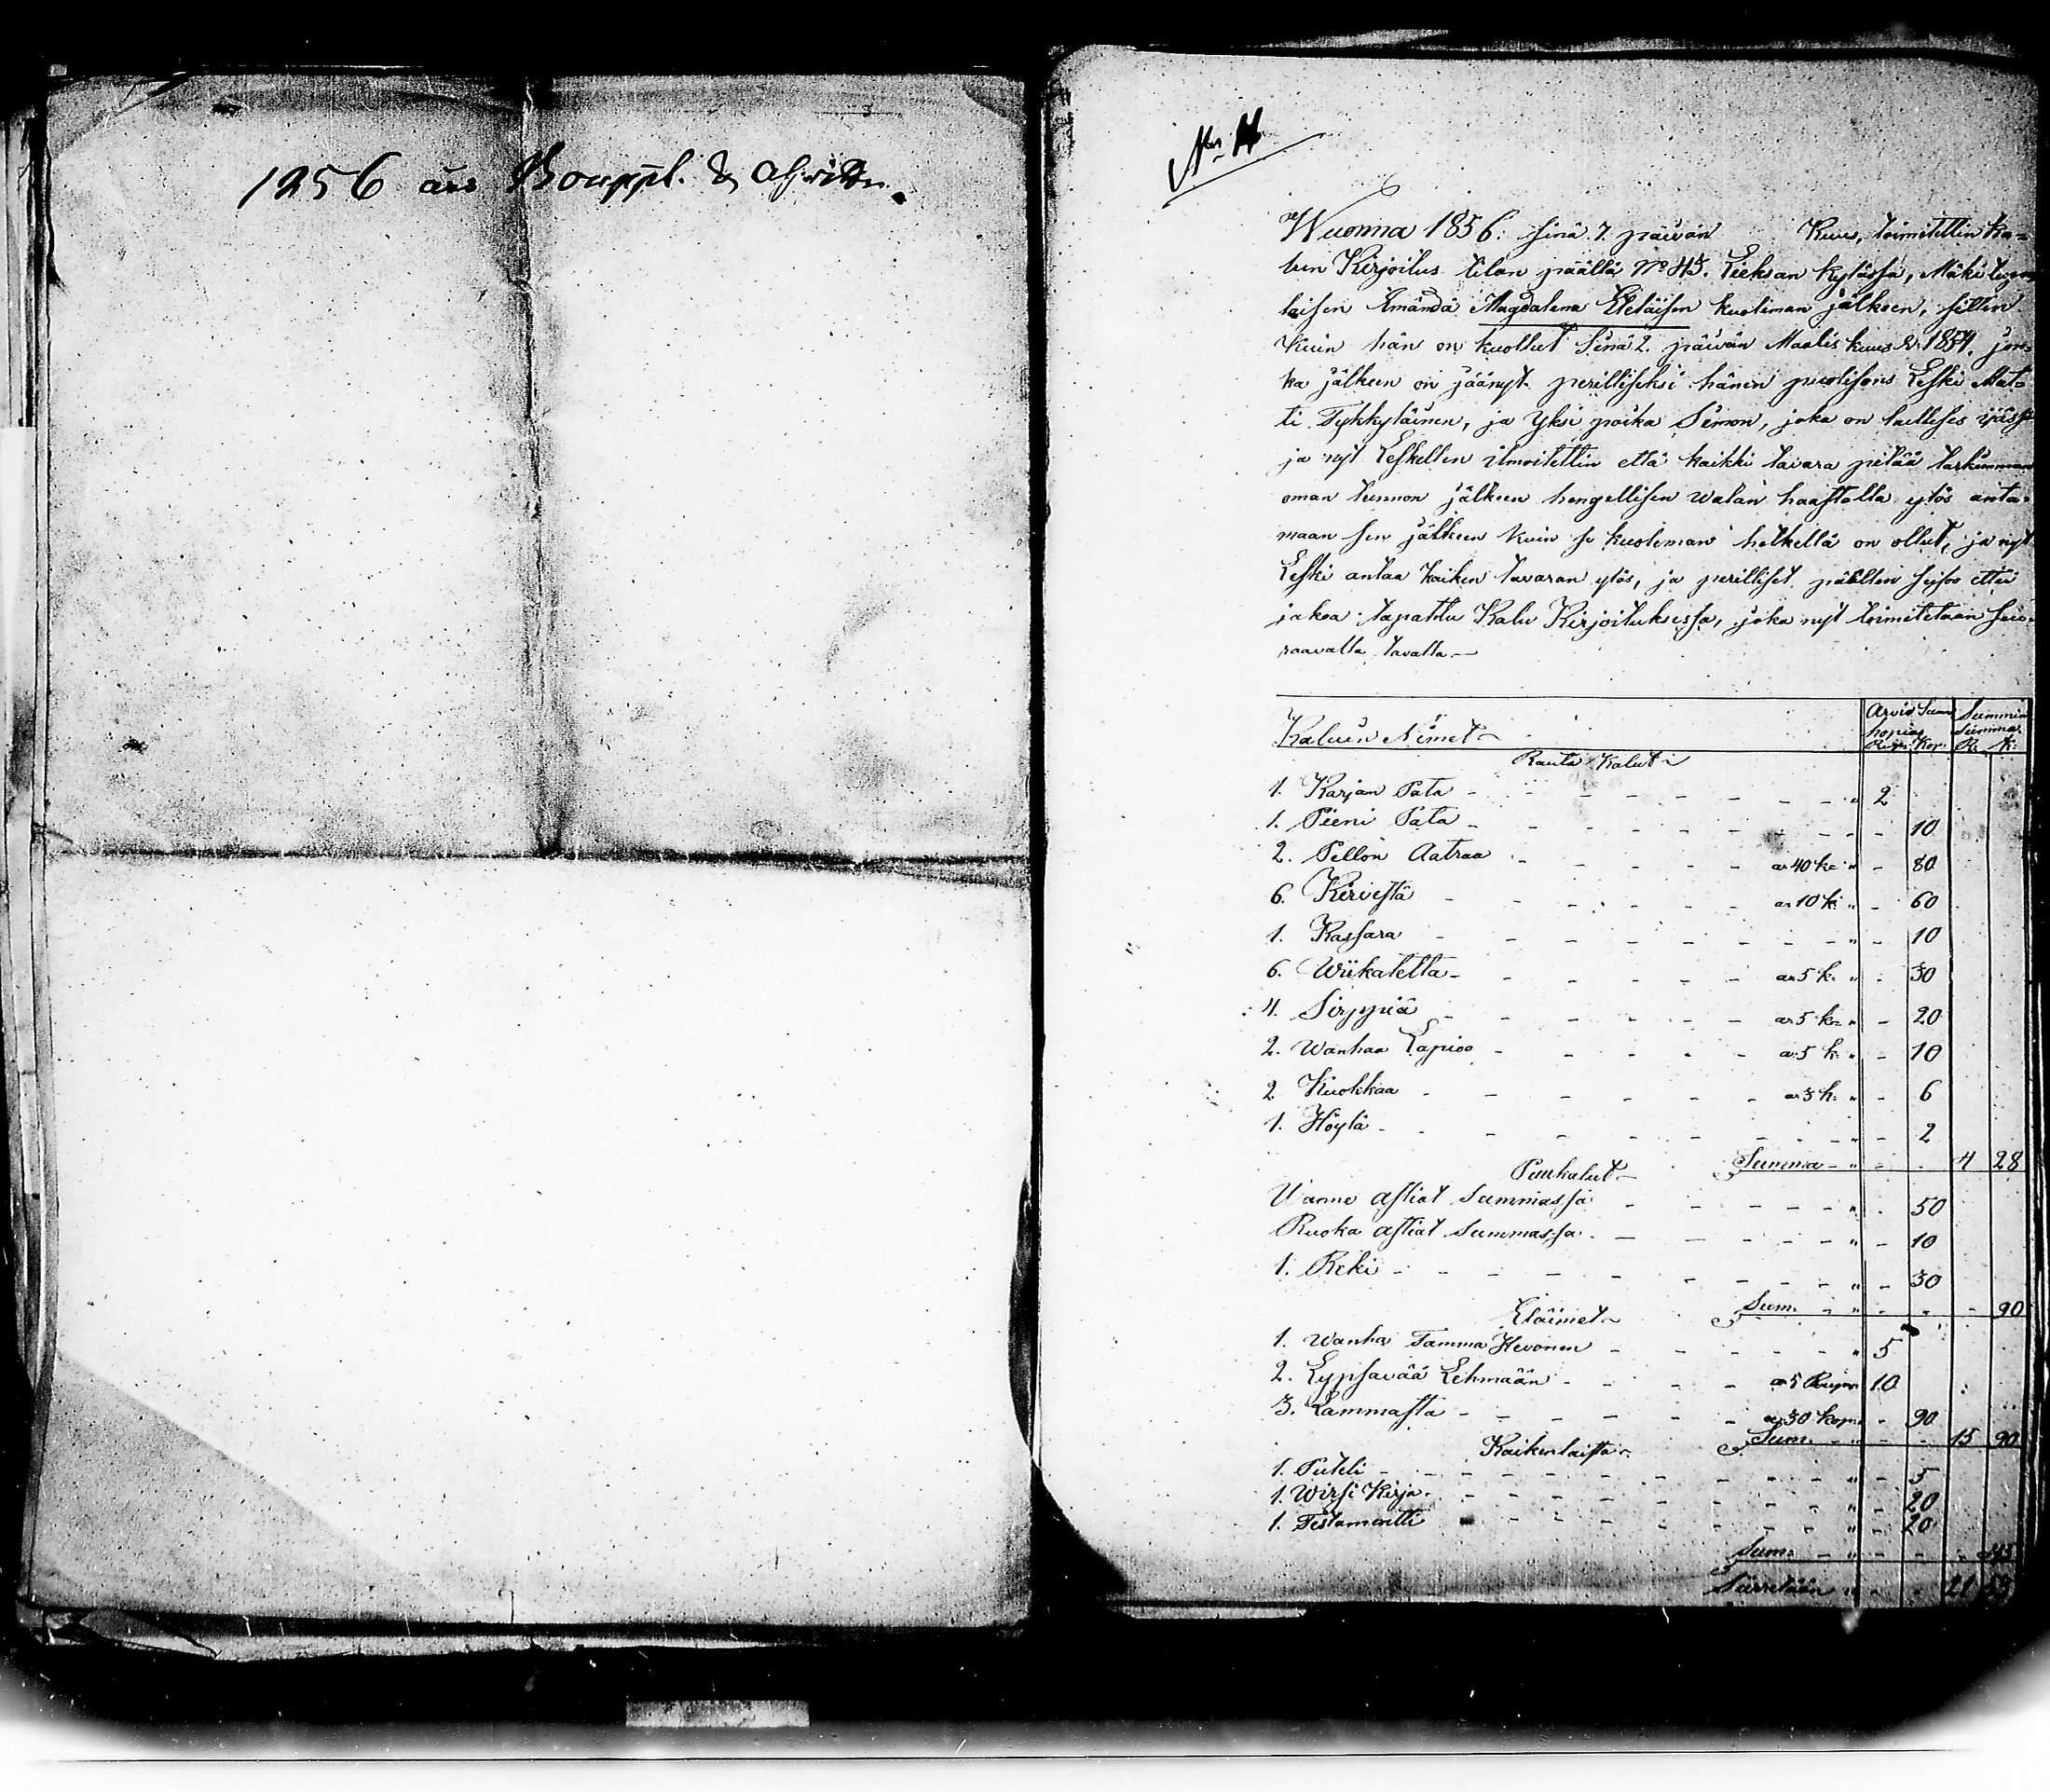 1856 års Bouppt. &
No 4
Wuonna 1856: sinä 7. päivän Kuus, toimitettin Ka-
lun Kirjoitus tilan päällä No 45. Lieksan kylässä, Mäkitupa
laisen Emändä Magdalena Eteläisen kuoleman jälkeen, sitten
kuin hän on kuollut Sinä 2. päivän Maalis kuus V. 1854. jon-
ka jälkeen on jäänyt perilliseksi hänen puolisons Leski Mat-
ti Tykkyläinen, ja Yksi poika Simon, joka on laillises ijässä
ja nyt Leskellen ilmoitettin että kaikki tavara pitää tarkimman
oman tunnon jälkeen hengellisen walan haastolla ylös anta-
maan sen jälkeen kuin se kuoleman hetkellä on ollut, ja nyt
Leski antaa kaiken tavaran ylös, ja perilliset päällen seisoo ettei
jakoa tapahtu Kalu Kirjoituksessa, joka nyt toimitetaan seu-
raavalla tavalla.—
Kaluin Nimet Arvio Sum Summin
hopias Summa
Rup. Kop. R. K:
Rauta Kalut
1. Karjan Pata - - - 2
1. Pieni Pata - - - 10
2. Pellon Aatraa - - - a 40 k: - 80
6. Kirvestä - - - a 10 k: - 60
1. Kassara - - - 10
6. Wiikatetta - - - a 5 k: - 30
4. Sirppiä - - - a 5 k: - 20
2. Wanhaa Lapioo - - - a 5 k: - 10
2. Kuokkaa - - - a 3 k: - 6
1. Höylä - - - 2
Puukalut Summa - - - 4 28
Wanne astiat Summassa - - - 50
Ruoka astiat Summassa - - - 10
1. Reki - - - 30
Eläimet Sum: - - - 90
1. Wanha Tamma Hevonen - - - 5
2. Lypsävää Lehmään - - - a 5 Rup: 10
3. Lammasta - - - a 30 kop: - 90
Kaikenlaista Sum: - - - 15 90
1. Puteli - - - 5
1. Wirsi Kirja - - - 20
1. Testamentti - - - 20
Sum: - - - 45
Siirretään - - - 21 53